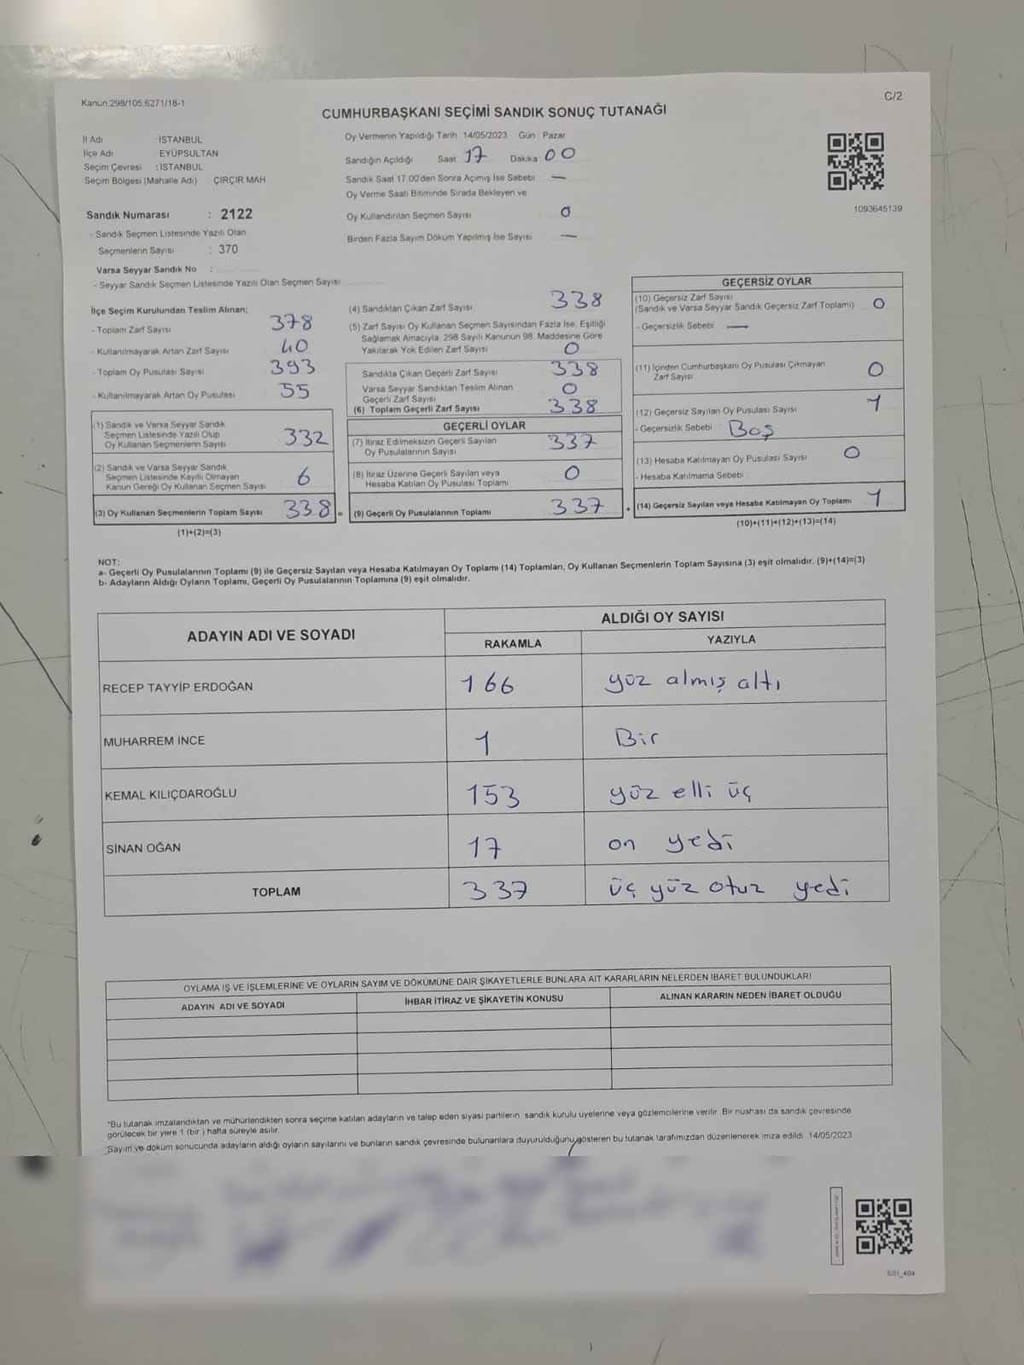 Kanun:298/105,6271/18-1
C/2
CUMHURBAŞKANI SEÇİMİ SANDIK SONUÇ TUTANAĞI
İl Adı İSTANBUL
İlçe Adı EYÜPSULTAN
Seçim Çevresi : İSTANBUL
Seçim Bölgesi (Mahalle Adı) ÇIRÇIR MAH
Sandık Numarası : 2122
- Sandık Seçmen Listesinde Yazılı Olan
Seçmenlerin Sayısı : 370
Varsa Seyyar Sandık No :
- Seyyar Sandık Seçmen Listesinde Yazılı Olan Seçmen Sayısı
Oy Vermenin Yapıldığı Tarih 14/05/2023 Gün Pazar
Sandığın Açıldığı Saat 17 Dakika 00
Sandık Saat 17.00'den Sonra Açılmış İse Sebebi —
Oy Verme Saati Bitiminde Sırada Bekleyen ve
Oy Kullandırılan Seçmen Sayısı 0
Birden Fazla Sayım Döküm Yapılmış İse Sayısı —
1093645139
İlçe Seçim Kurulundan Teslim Alınan;
- Toplam Zarf Sayısı 378
- Kullanılmayarak Artan Zarf Sayısı 40
- Toplam Oy Pusulası Sayısı 393
- Kullanılmayarak Artan Oy Pusulası 55
(1) Sandık ve Varsa Seyyar Sandık
Seçmen Listesinde Yazılı Olup
Oy Kullanan Seçmenlerin Sayısı 332
(2) Sandık ve Varsa Seyyar Sandık
Seçmen Listesinde Kayıtlı Olmayan
Kanun Gereği Oy Kullanan Seçmen Sayısı 6
(3) Oy Kullanan Seçmenlerin Toplam Sayısı 338 =
(1)+(2)=(3)
(4) Sandıktan Çıkan Zarf Sayısı 338
(5) Zarf Sayısı Oy Kullanan Seçmen Sayısından Fazla İse, Eşitliği
Sağlamak Amacıyla, 298 Sayılı Kanunun 98. Maddesine Göre
Yakılarak Yok Edilen Zarf Sayısı 0
Sandıkta Çıkan Geçerli Zarf Sayısı 338
Varsa Seyyar Sandıktan Teslim Alınan
Geçerli Zarf Sayısı 0
(6) Toplam Geçerli Zarf Sayısı 338
GEÇERLİ OYLAR
(7) İtiraz Edilmeksizin Geçerli Sayılan
Oy Pusulalarının Sayısı 337
(8) İtiraz Üzerine Geçerli Sayılan veya
Hesaba Katılan Oy Pusulası Toplamı 0
(9) Geçerli Oy Pusulalarının Toplamı 337 +
GEÇERSİZ OYLAR
(10) Geçersiz Zarf Sayısı
(Sandık ve Varsa Seyyar Sandık Geçersiz Zarf Toplamı) 0
- Geçersizlik Sebebi —
(11) İçinden Cumhurbaşkanı Oy Pusulası Çıkmayan
Zarf Sayısı 0
(12) Geçersiz Sayılan Oy Pusulası Sayısı 1
- Geçersizlik Sebebi Boş
(13) Hesaba Katılmayan Oy Pusulası Sayısı 0
- Hesaba Katılmama Sebebi
(14) Geçersiz Sayılan veya Hesaba Katılmayan Oy Toplamı 1
(10)+(11)+(12)+(13)=(14)
NOT:
a- Geçerli Oy Pusulalarının Toplamı (9) ile Geçersiz Sayılan veya Hesaba Katılmayan Oy Toplamı (14) Toplamları, Oy Kullanan Seçmenlerin Toplam Sayısına (3) eşit olmalıdır. (9)+(14)=(3)
b- Adayların Aldığı Oyların Toplamı, Geçerli Oy Pusulalarının Toplamına (9) eşit olmalıdır.
ADAYIN ADI VE SOYADI ALDIĞI OY SAYISI
RAKAMLA YAZIYLA
RECEP TAYYİP ERDOĞAN 166 yüz almış altı
MUHARREM İNCE 1 Bir
KEMAL KILIÇDAROĞLU 153 yüz elli üç
SİNAN OĞAN 17 on yedi
TOPLAM 337 üç yüz otuz yedi
OYLAMA İŞ VE İŞLEMLERİNE VE OYLARIN SAYIM VE DÖKÜMÜNE DAİR ŞİKAYETLERLE BUNLARA AİT KARARLARIN NELERDEN İBARET BULUNDUKLARI
ADAYIN ADI VE SOYADI İHBAR İTİRAZ VE ŞİKAYETİN KONUSU ALINAN KARARIN NEDEN İBARET OLDUĞU
*Bu tutanak imzalandıktan ve mühürlendikten sonra seçime katılan adayların ve talep eden siyasi partilerin sandık kurulu üyelerine veya gözlemcilerine verilir. Bir nüshası da sandık çevresinde
görülecek bir yere 1 (bir) hafta süreyle asılır.
Sayım ve döküm sonucunda adayların aldığı oyların sayılarını ve bunların sandık çevresinde bulunanlara duyurulduğunu gösteren bu tutanak tarafımızdan düzenlenerek imza edildi. 14/05/2023